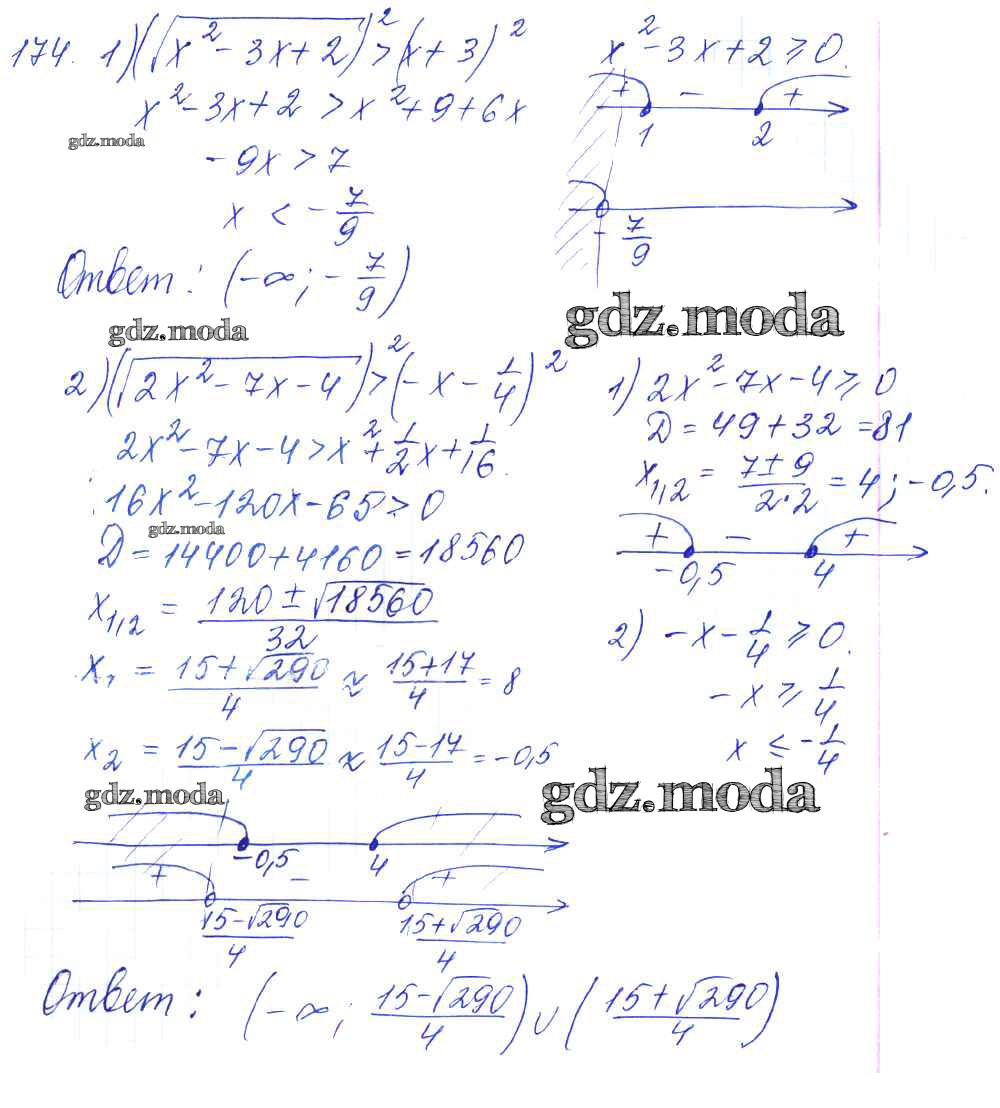 174. 1) (√(x² - 3x + 2))² > (x + 3)²
x² - 3x + 2 > x² + 9 + 6x
gdz.moda
- 9x > 7
x < - 7/9
Ответ: (-∞; - 7/9)
x² - 3x + 2 ≥ 0.
+ - +
1 2
- 7/9
gdz.moda
gdz.moda
2) (√(2x² - 7x - 4))² > (- x - 1/4)²
2x² - 7x - 4 > x² + 1/2 x + 1/16.
16x² - 120x - 65 > 0
gdz.moda
D = 14400 + 4160 = 18560
x₁,₂ = (120 ± √18560)/32
x₁ = (15 + √290)/4 ≈ (15 + 17)/4 = 8
x₂ = (15 - √290)/4 ≈ (15 - 17)/4 = -0,5
1) 2x² - 7x - 4 ≥ 0
D = 49 + 32 = 81
x₁,₂ = (7 ± 9)/(2·2) = 4; -0,5.
+ - +
-0,5 4
2) - x - 1/4 ≥ 0.
- x ≥ 1/4
x ≤ - 1/4
gdz.moda
gdz.moda
-0,5 4
+ - +
(15 - √290)/4 (15 + √290)/4
Ответ: (-∞; (15 - √290)/4) ∪ ((15 + √290)/4)